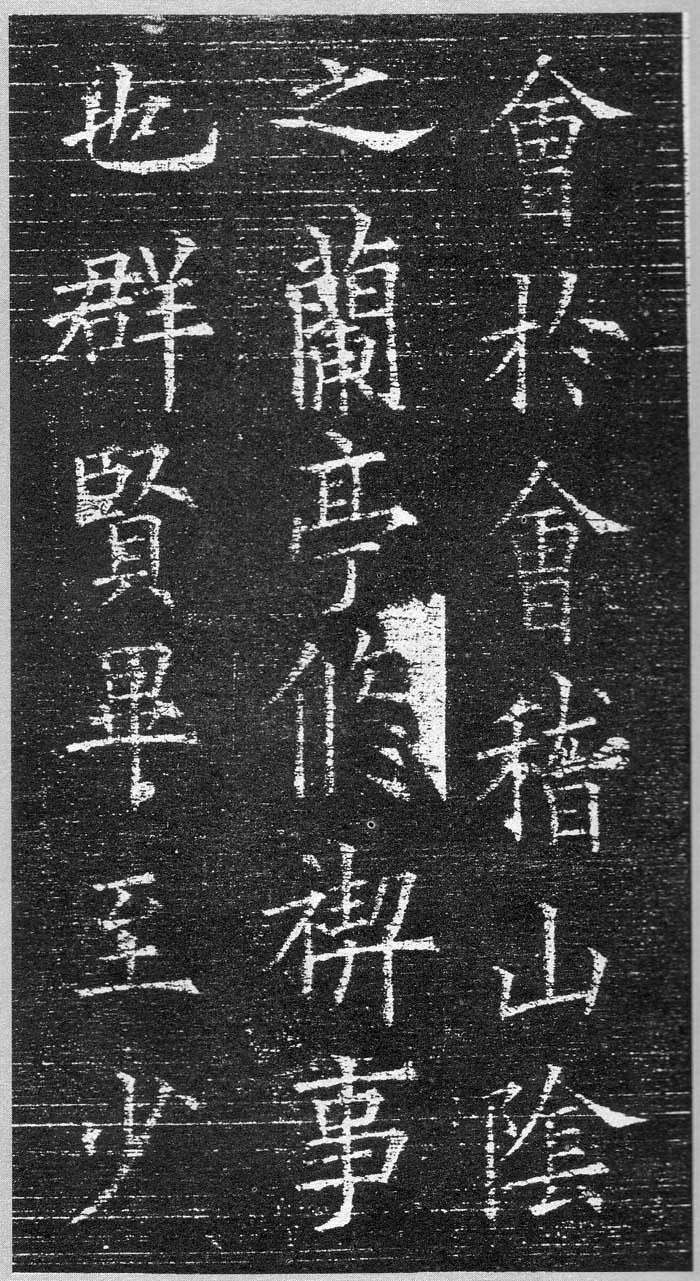 會於會稽山陰
之蘭亭脩禊事
也群賢畢至少